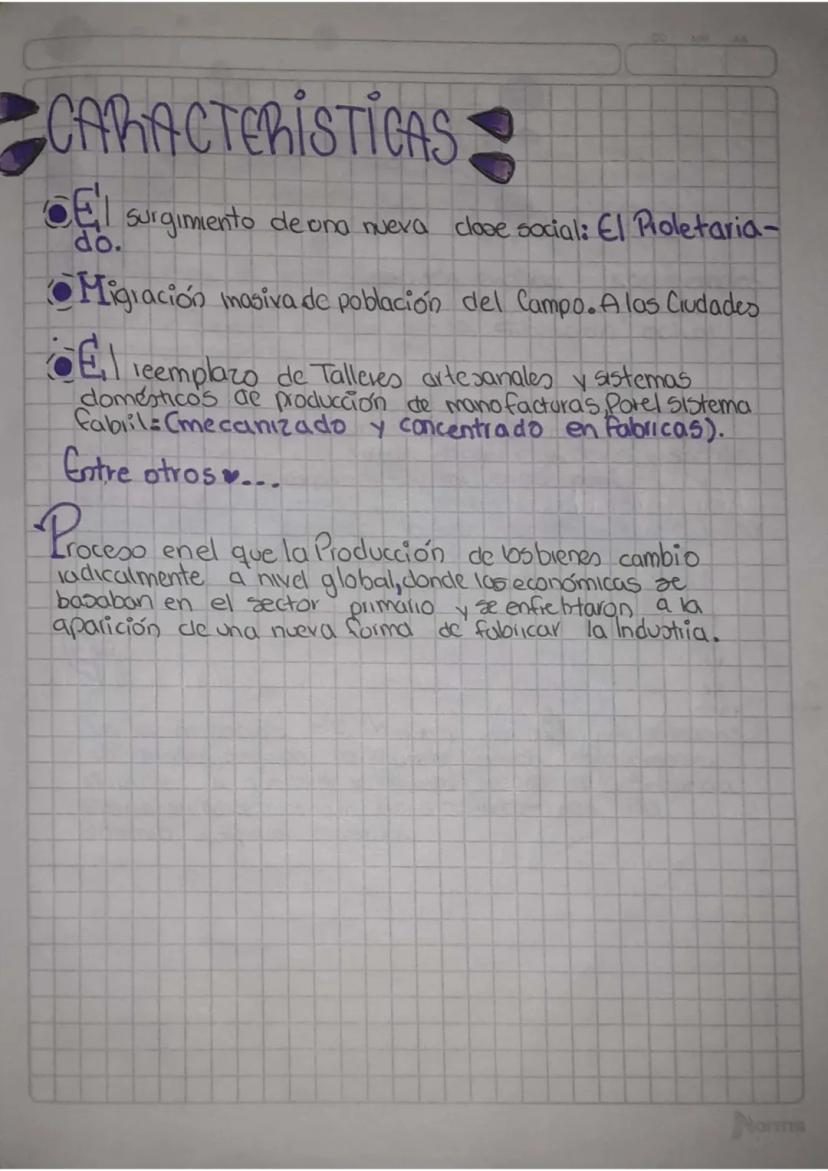 CARACTERÍSTICAS
El surgimiento de una nueva clase social: El Proletaria-
do.
Migración masiva de población del Campo. A las Ciudades
El reemplazo de Talleres artesanales y sistemas
domésticos de producción de manofacturas, Por el sistema
fabril: (mecanizado y concentrado en fabricas).
Entre otros ♥...
Proceso en el que la Producción de los bienes cambio
radicalmente a nivel global, donde las económicas se
basaban en el sector primario y se enfrebtaron a la
aparición de una nueva forma de fabricar la Industria.
Norma